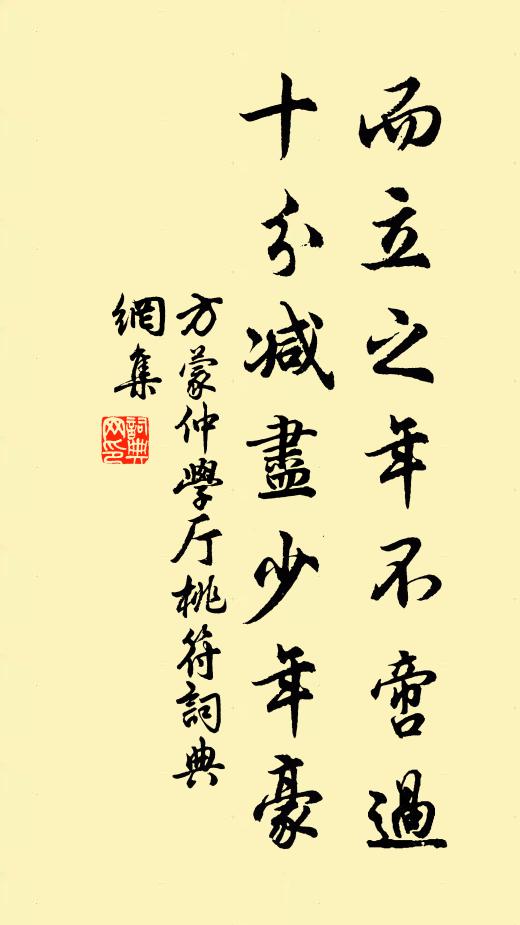 而立之年不啻過
十分減盡少年豪
方蒙仲學厅桃符詞典
網集
詞典
网印